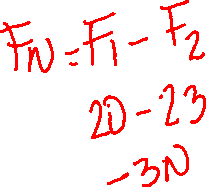 FN = F1 - F2
20 - 23
-3N